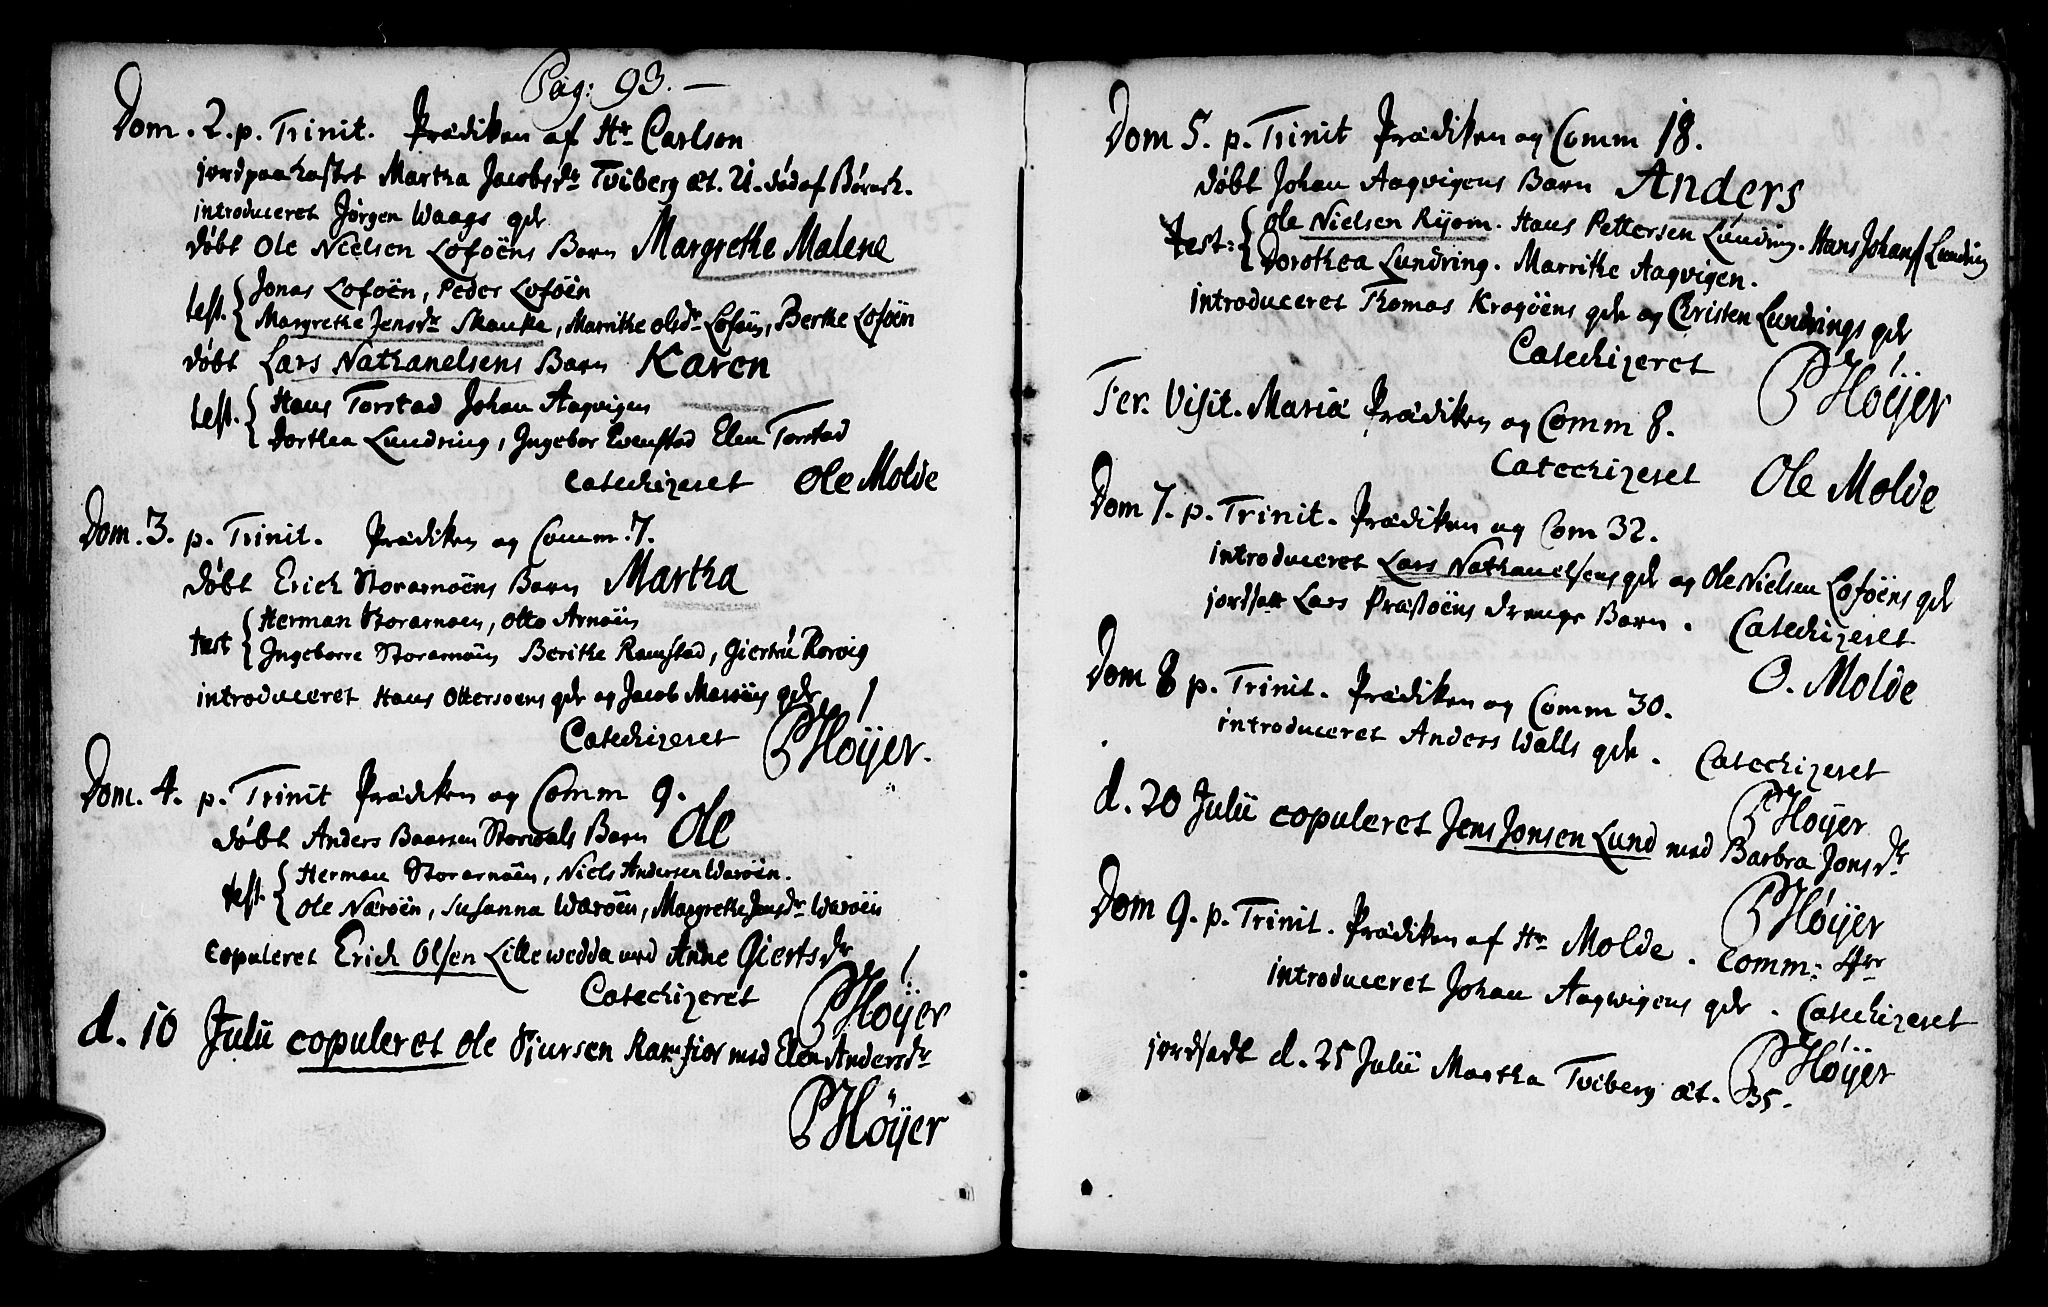 Pag: 93. —
Dom. 2. p. Trinit. Prædiken af Hr Carlson
jordpaakastet Martha Jacobsdr Tviberg æt. 21. død af
introduceret Jørgen Waags qdr
døbt Ole Nielsen Loføens Barn Margrethe Malene
test. { Jonas Loføen, Peder Loføen
Margrethe Jensdr Skanke, Marrithe olsdr Loføen, Berthe Loføen
døbt Lars Nathanelsens Barn Karen
test. { Hans Torstad Johan Aagvigen
Dorthea Lundring, Ingebor Evenstad Elen Torstad
Catechizeret Ole Molde
Dom. 3. p. Trinit. Prædiken og Comm. 7.
døbt Erich Storarnøens Barn Martha
test { Herman Storarnøen, Otto Arnøen
Ingeborre Storarnøen Berithe Ramstad, Giertru Rorvig
introduceret Hans Ottersoens qdr og Jacob Marøens qdr
Catechizeret PHøijer.
Dom. 4. p. Trinit Prædiken og Comm 9.
døbt Anders Baarsen Storvals Barn Ole
test. { Herman Storarnøen, Niels Andersen Warøen.
Ole Nærøen, Susanna Warøen, Margrethe Jensdr Warøen
copuleret Erich Olsen Lillewedda med Anne Giertsdr
Catechizeret PHøijer
d. 10 Julii copuleret Ole Sjursen med Elen Andersdr
PHøijer
Dom 5. p. Trinit Prædiken og Comm 18.
døbt Johan Aagvigens Barn Anders
test: { Ole Nielsen Ryom. Hans Pettersen Lundring. Hans Johans Lundring
Dorothea Lundring. Marrithe Aagvigen.
introduceret Thomas Kragøens qdr og Christen Lundrings qdr
Catechizeret PHøijer
Fer. Visit. Mariæ Prædiken og Comm 8.
Catechizeret Ole Molde
Dom 7. p. Trinit. Prædiken og Com 32.
introduceret Lars Nathanelsens qdr og Ole Nielsen Loføens qdr
jordsatt Lars Præstøens drenge Barn. Catechizeret
O. Molde
Dom 8 p. Trinit. Prædiken og Comm 30.
introduceret Anders Walls qdr. Catechizeret
PHøijer
d. 20 Julii copuleret Jens Jonsen Lund med Barbra Jonsdr
PHøijer
Dom 9. p. Trinit. Prædiken af Hr Molde. Comm:
introduceret Johan Aagwigens qdr. Catechizeret
PHøijer
jordsadt d. 25 Julii Martha Tviberg æt. 35.